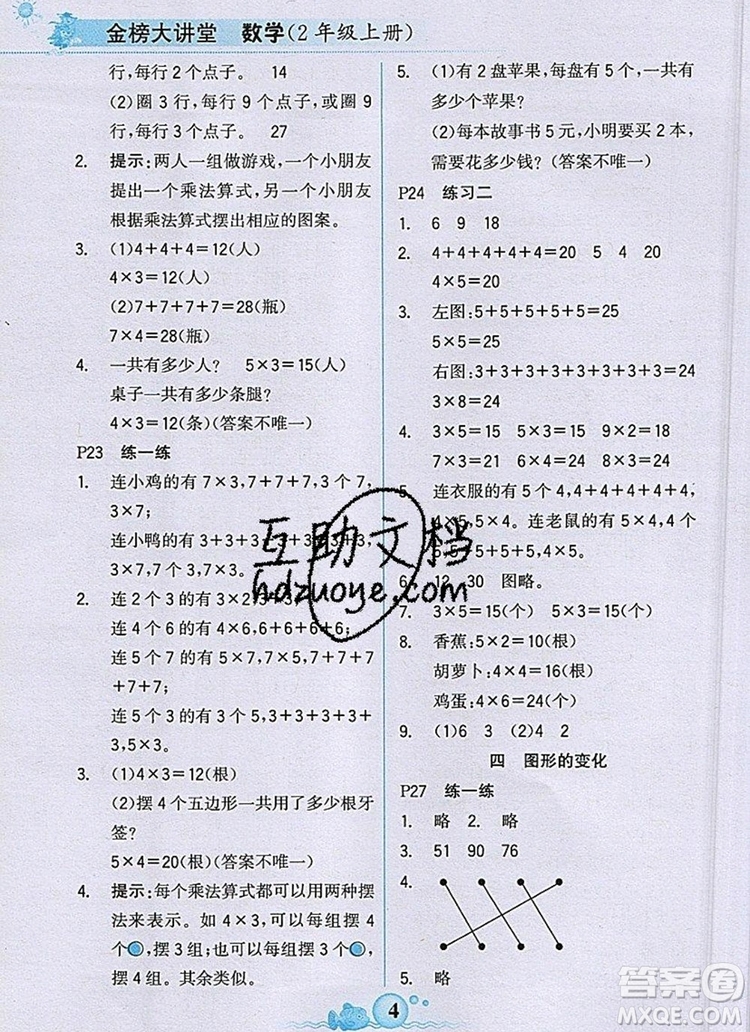 金榜大讲堂 数学(2年级上册)
行,每行2个点子。 14
(2)圈3行,每行9个点子,或圈9
行,每行3个点子。 27
2. 提示:两人一组做游戏,一个小朋友
提出一个乘法算式,另一个小朋友
根据乘法算式摆出相应的图案。
3. (1)4+4+4=12(人)
4×3=12(人)
(2)7+7+7+7=28(瓶)
7×4=28(瓶)
4. 一共有多少人? 5×3=15(人)
桌子一共有多少条腿?
4×3=12(条)(答案不唯一)
P23 练一练
1. 连小鸡的有7×3,7+7+7,3个7,
3×7;
连小鸭的有3+3+3+3+3+3+3,
3×7,7个3,7×3。
2. 连2个3的有3×2,3+3
连4个6的有4×6,6+6+6+6;
连5个7的有5×7,7+7+7
+7+7;
连5个3的有3×5,3+3+3+3
+3,5×3。
3. (1)4×3=12(根)
(2)摆4个五边形一共用了多少根牙
签?
5×4=20(根)(答案不唯一)
4. 提示:每个乘法算式都可以用两种摆
法来表示。如4×3,可以每组摆4
个,摆3组;也可以每组摆3个,
摆4组。其余类似。
5. (1)有2盘苹果,每盘有5个,一共有
多少个苹果?
(2)每本故事书5元,小明要买2本,
需要花多少钱?(答案不唯一)
P24 练习二
1. 6 9 18
2. 4+4+4+4+4=20 5 4 5
4×5=20
3. 左图:5+5+5+5+5=25
5×5=25
右图:3+3+3+3+3+3+3+3=24
3×8=24
4. 3×5=15 5×9=45 9×2=18
7×3=21 8×5=40 6×4=24
5. 连衣服的有5个4,4+4+4+4+4,
4×5,5×4。连老鼠的有5×4,4个
5,5+5+5+5,4×5。
6. 12 30 图略。
7. 3×5=15(个) 5×3=15(个)
8. 香蕉:5×2=10(根)
胡萝卜:4×4=16(根)
鸡蛋:4×6=24(个)
9. (1)6 3 (2)4 2
四 图形的变化
P27 练一练
1. 略 2. 略
3. 51 90 76
4.
5. 略
4
互助文档
hdzuoye.com
答案圈
MXQE.COM